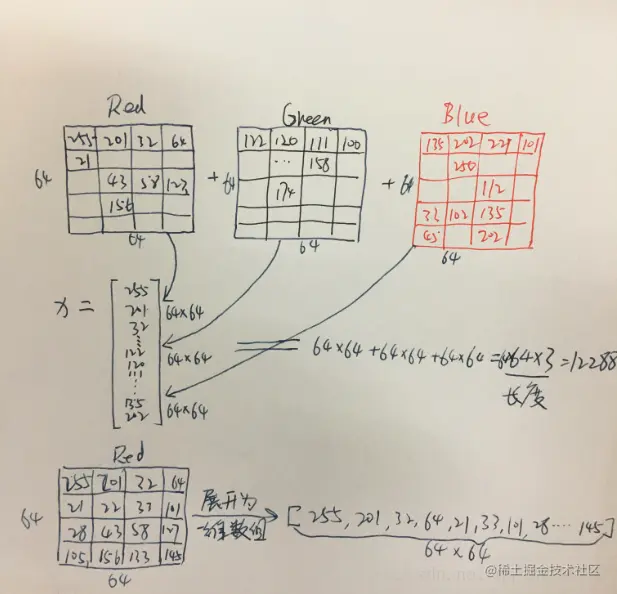 Red Green Blue
255 201 32 64
21
43 58 123
156
64
64
+
122 120 111 100
... 158
174
64
64
+
135 202 229 101
250
112
33 102 135
45 202
64
64
x =
255
201
32
⋮
122
120
111
⋮
135
202
64×64
64×64
64×64
64×64 + 64×64 + 64×64 = 64×3 = 12288
长度
Red
255 201 32 64
21 22 33 101
28 43 58 127
105 156 133 145
64
64
展开为
一维数组
[255, 201, 32, 64, 21, 33, 101, 28 ... 145]
64×64
@稀土掘金技术社区